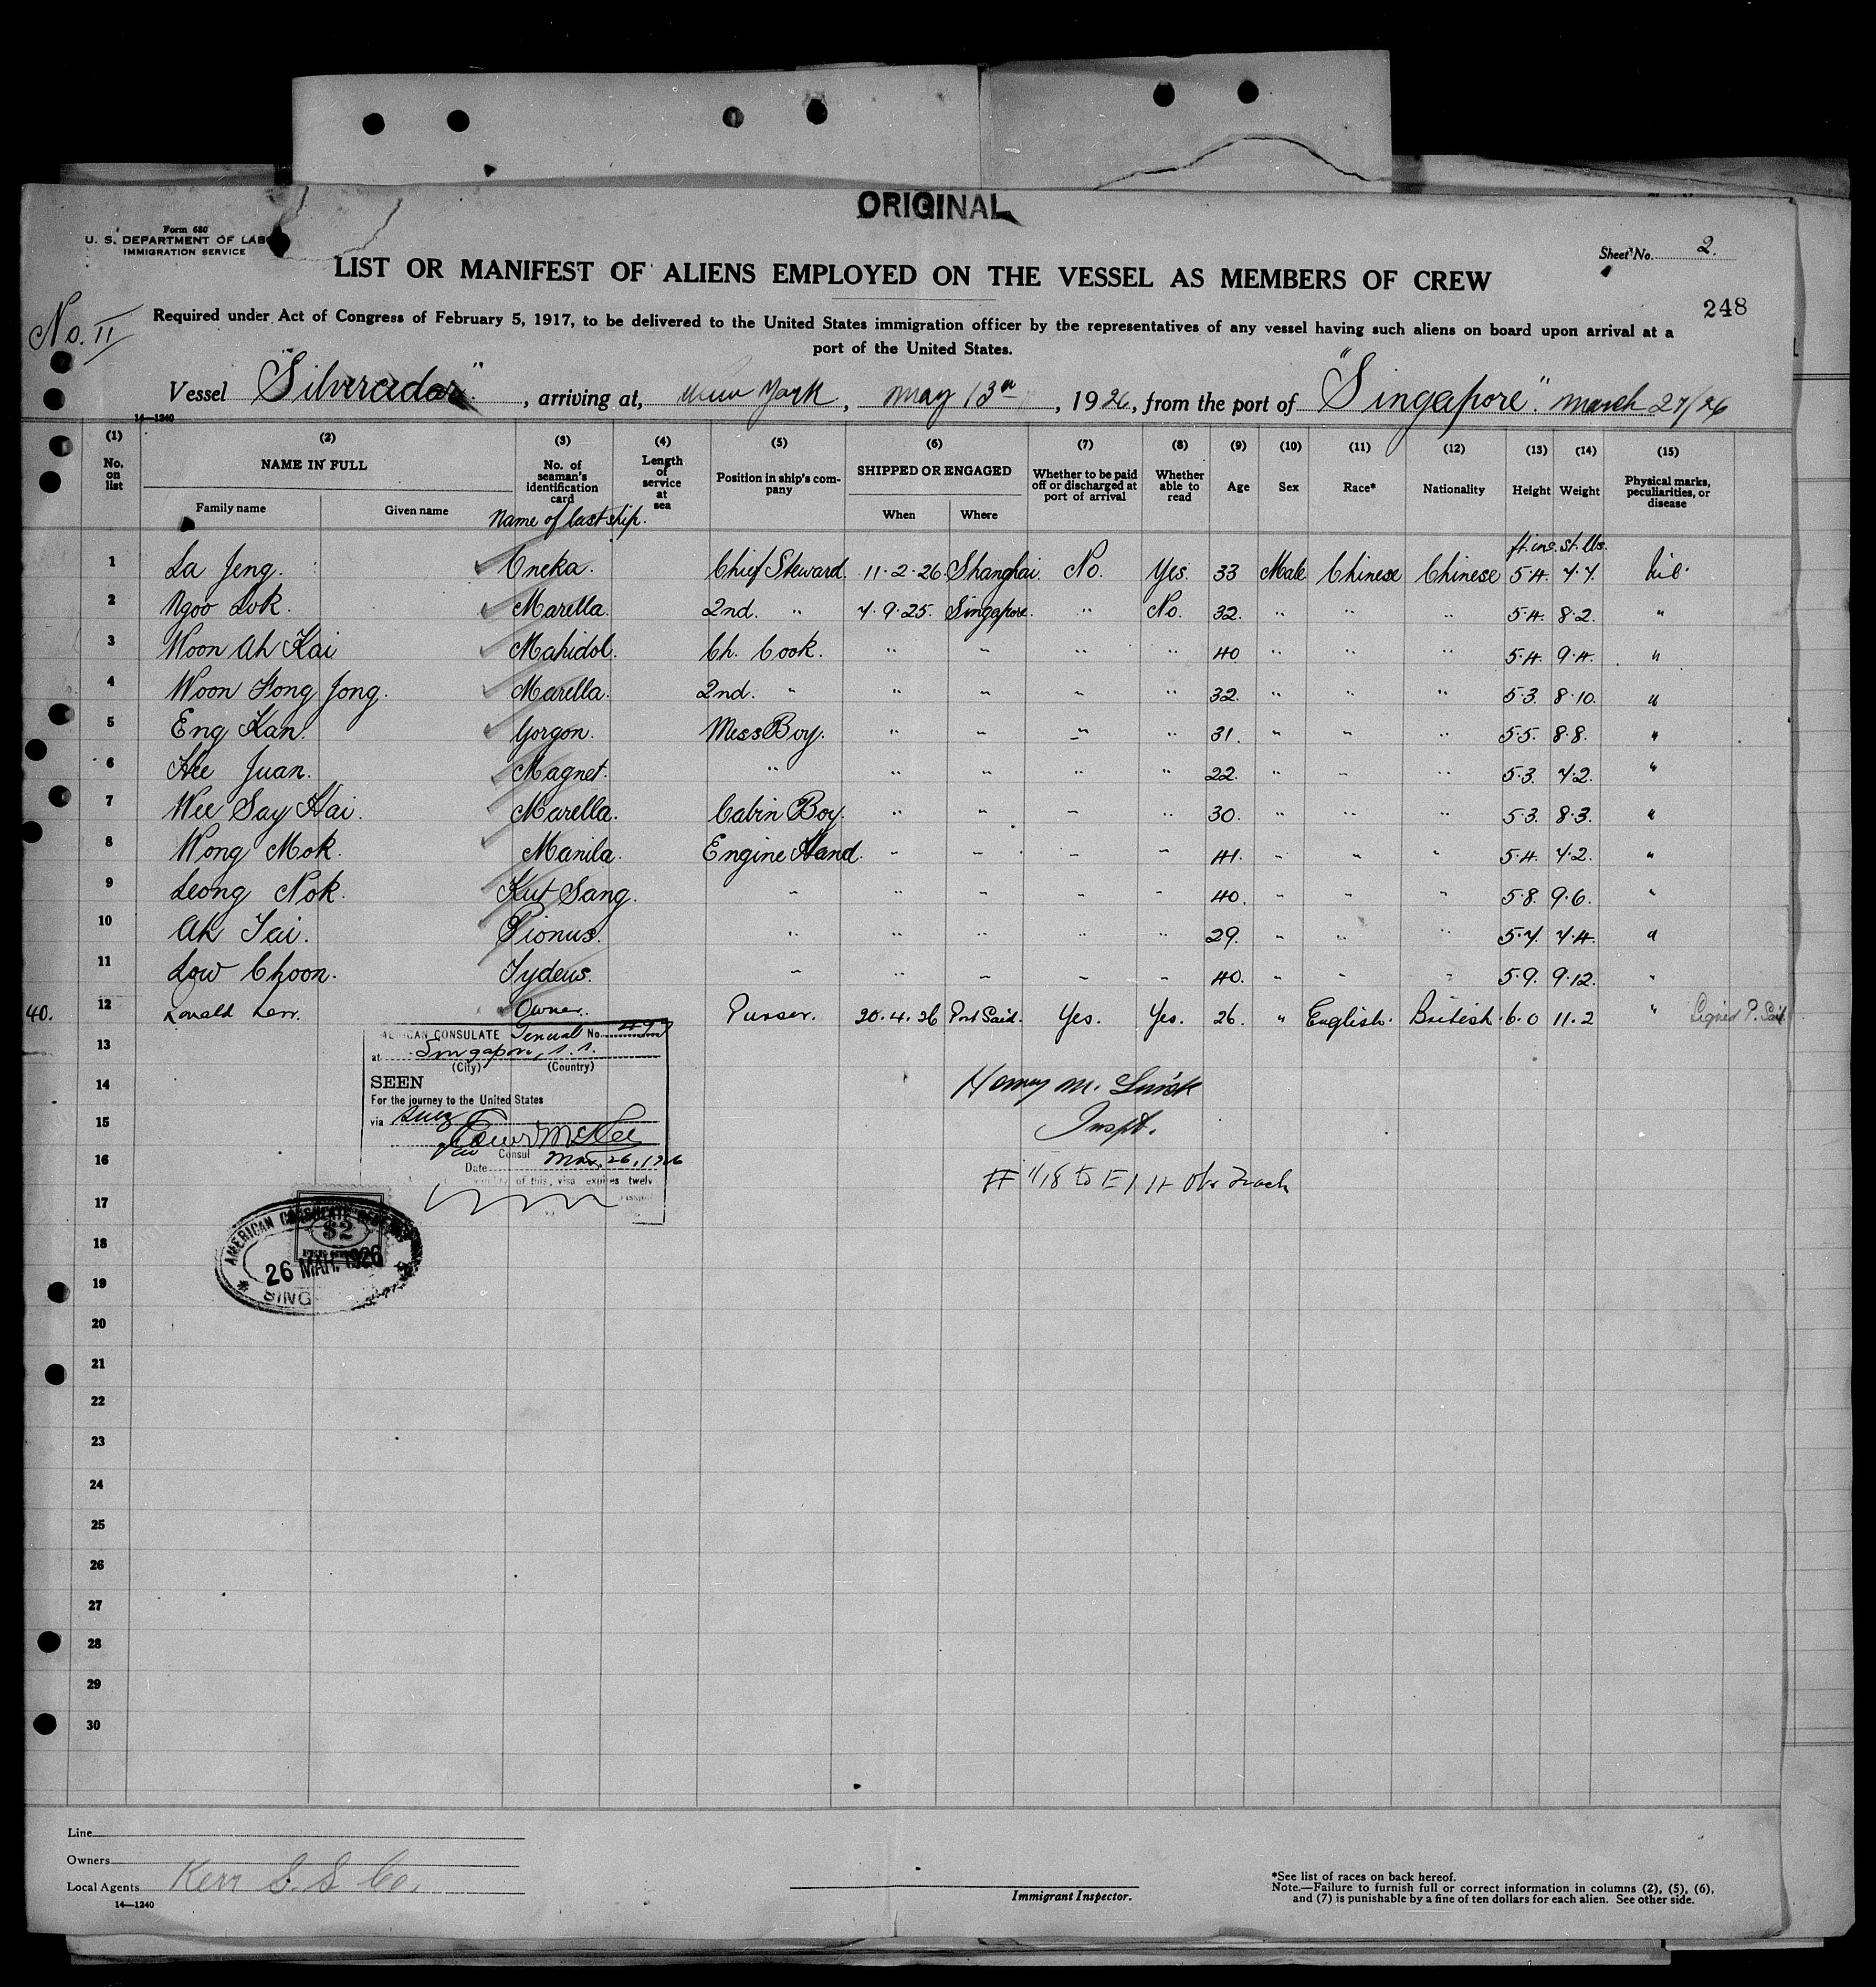 ORIGINAL
Form 680
U. S. DEPARTMENT OF LAB
IMMIGRATION SERVICE
Sheet No. 2.
LIST OR MANIFEST OF ALIENS EMPLOYED ON THE VESSEL AS MEMBERS OF CREW
248
No. 11
Required under Act of Congress of February 5, 1917, to be delivered to the United States immigration officer by the representatives of any vessel having such aliens on board upon arrival at a
port of the United States.
Vessel "Silvercedar", arriving at, New York, May 13th, 1926, from the port of "Singapore". March 27/26
14—1240
(1) (2) (3) (4) (5) (6) (7) (8) (9) (10) (11) (12) (13) (14) (15)
No. on list NAME IN FULL Family name Given name No. of seaman's identification card Name of last ship. Length of service at sea Position in ship's company SHIPPED OR ENGAGED When Where Whether to be paid off or discharged at port of arrival Whether able to read Age Sex Race* Nationality Height Weight Physical marks, peculiarities, or disease
ft. ins. st. lbs.
1 La Jeng. Oneka. Chief Steward. 11.2.26. Shanghai. No. Yes. 33 Male Chinese Chinese 5.4. 7.7. Nil.
2 Ngoo Lok. Marella. 2nd. " 7.9.25. Singapore. " No. 32. " " " 5.4. 8.2. "
3 Woon Ah Kai Mahidol. Ch. Cook. " " " " 40 " " " 5.4. 9.4. "
4 Woon Fong Jong. Marella. 2nd. " " " " " 32. " " " 5.3. 8.10. "
5 Eng Kan. Gorgon. Mess Boy. " " " " 31. " " " 5.5. 8.8. "
6 Hee Juan. Magnet. " " " " " 22. " " " 5.3. 7.2. "
7 Wee Say Hai. Marella. Cabin Boy. " " " " 30. " " " 5.3. 8.3. "
8 Wong Mok. Manila. Engine Hand. " " " " 41. " " " 5.4. 7.2. "
9 Leong Nok. Kut Sang. " " " " " 40. " " " 5.8. 9.6. "
10 Ah Tai. Pionus. " " " " " 29. " " " 5.7. 7.4. "
11 Low Choon. Tydeus. " " " " " 40. " " " 5.9. 9.12. "
40. 12 Ronald Kerr. Owner. Purser. 20.4.26 Port Said. Yes. Yes. 26. " English. British. 6.0 11.2 " Signed P. Said
13
14
15
16
17
18
19
20
21
22
23
24
25
26
27
28
29
30
AMERICAN CONSULATE General No.
at Singapore, S.S.
(City) (Country)
SEEN
For the journey to the United States
via Suez
Vice Consul
Date Mar. 26, 1926
of this visa expires twelve
AMERICAN CONSULATE
$2
26 MAR. 1926
SING
Inspt.
Line
Owners
Local Agents Kerr S. S. Co.
14—1240
Immigrant Inspector.
*See list of races on back hereof.
Note.—Failure to furnish full or correct information in columns (2), (5), (6),
and (7) is punishable by a fine of ten dollars for each alien. See other side.